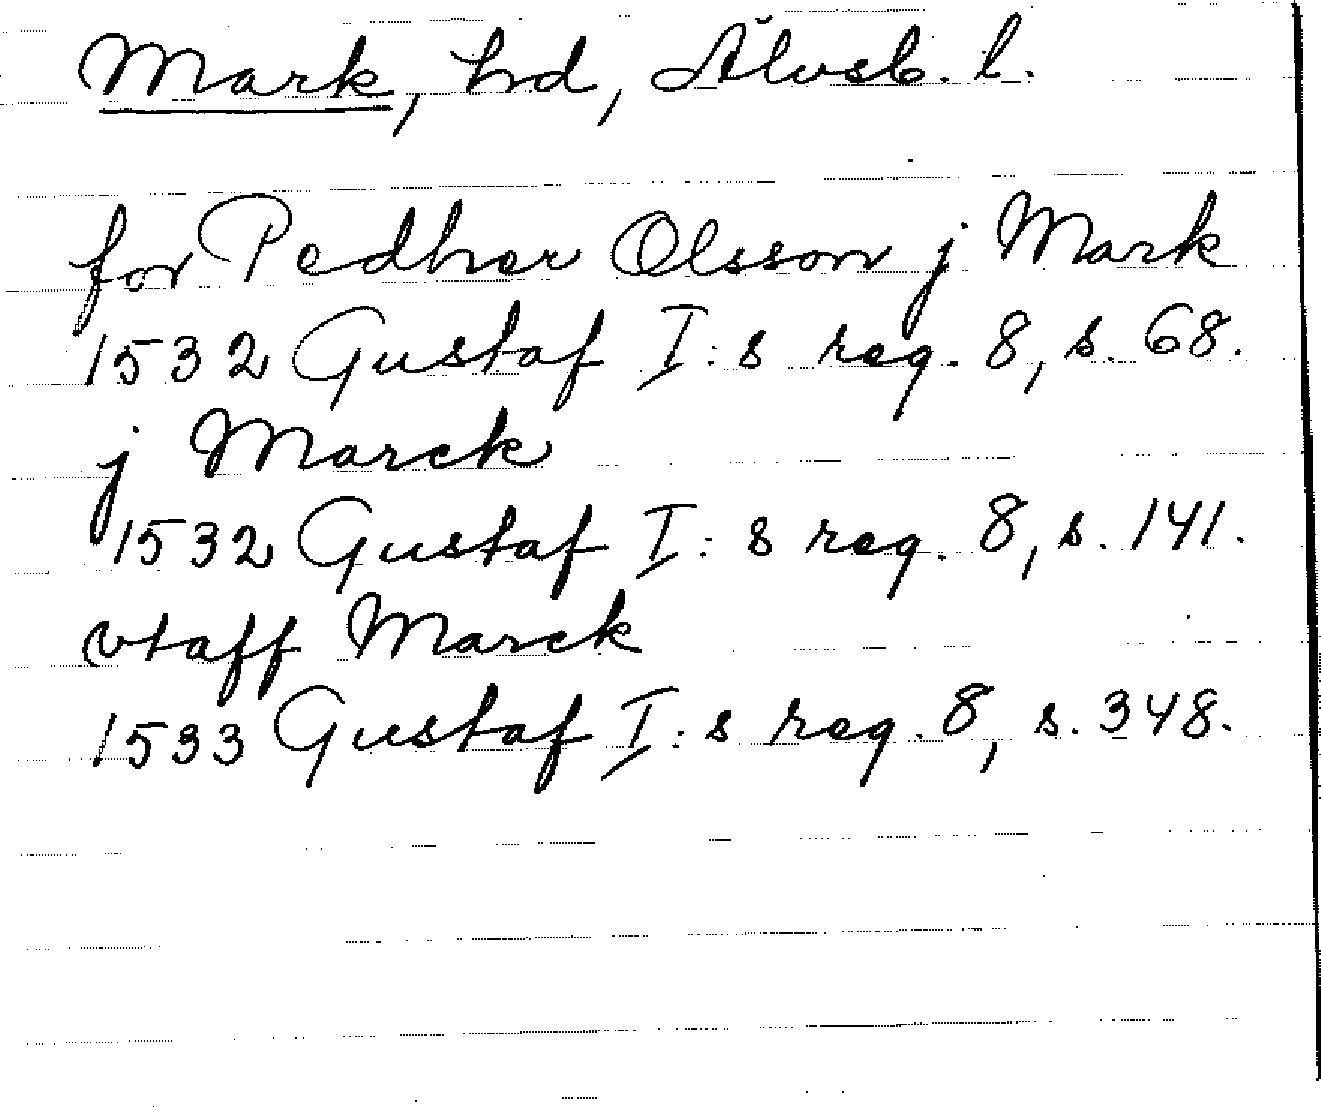 Mark, hd, Älvsb. l.
for Pedher Olsson j Mark
1532 Gustaf I:s reg. 8, s. 68.
j Marck
1532 Gustaf I:s reg. 8, s. 141.
vtaff Marck
1533 Gustaf I:s reg. 8, s. 348.